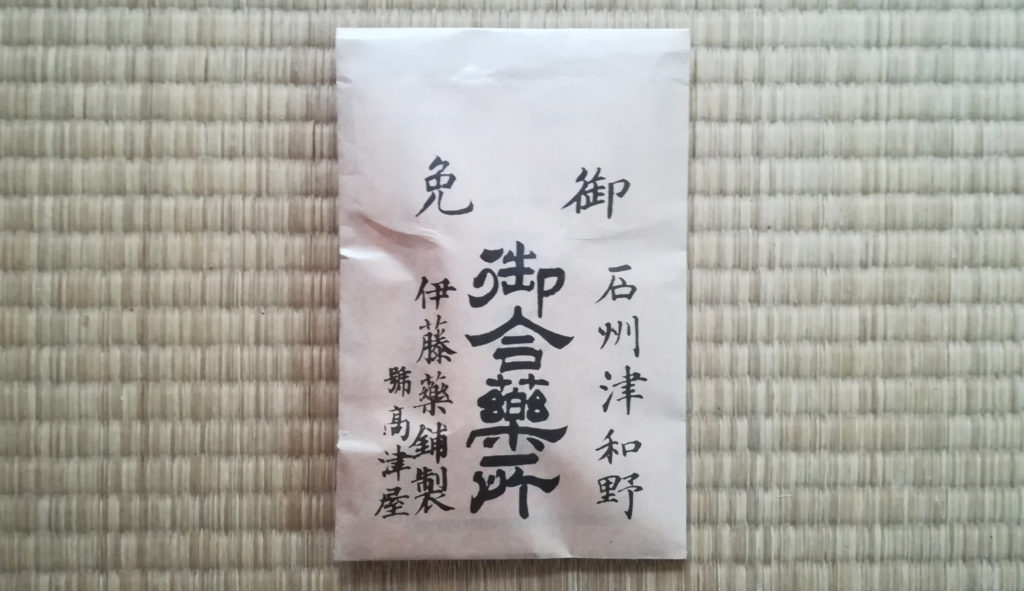 御免
石州津和野
御合藥所
伊藤藥舖製
號高津屋